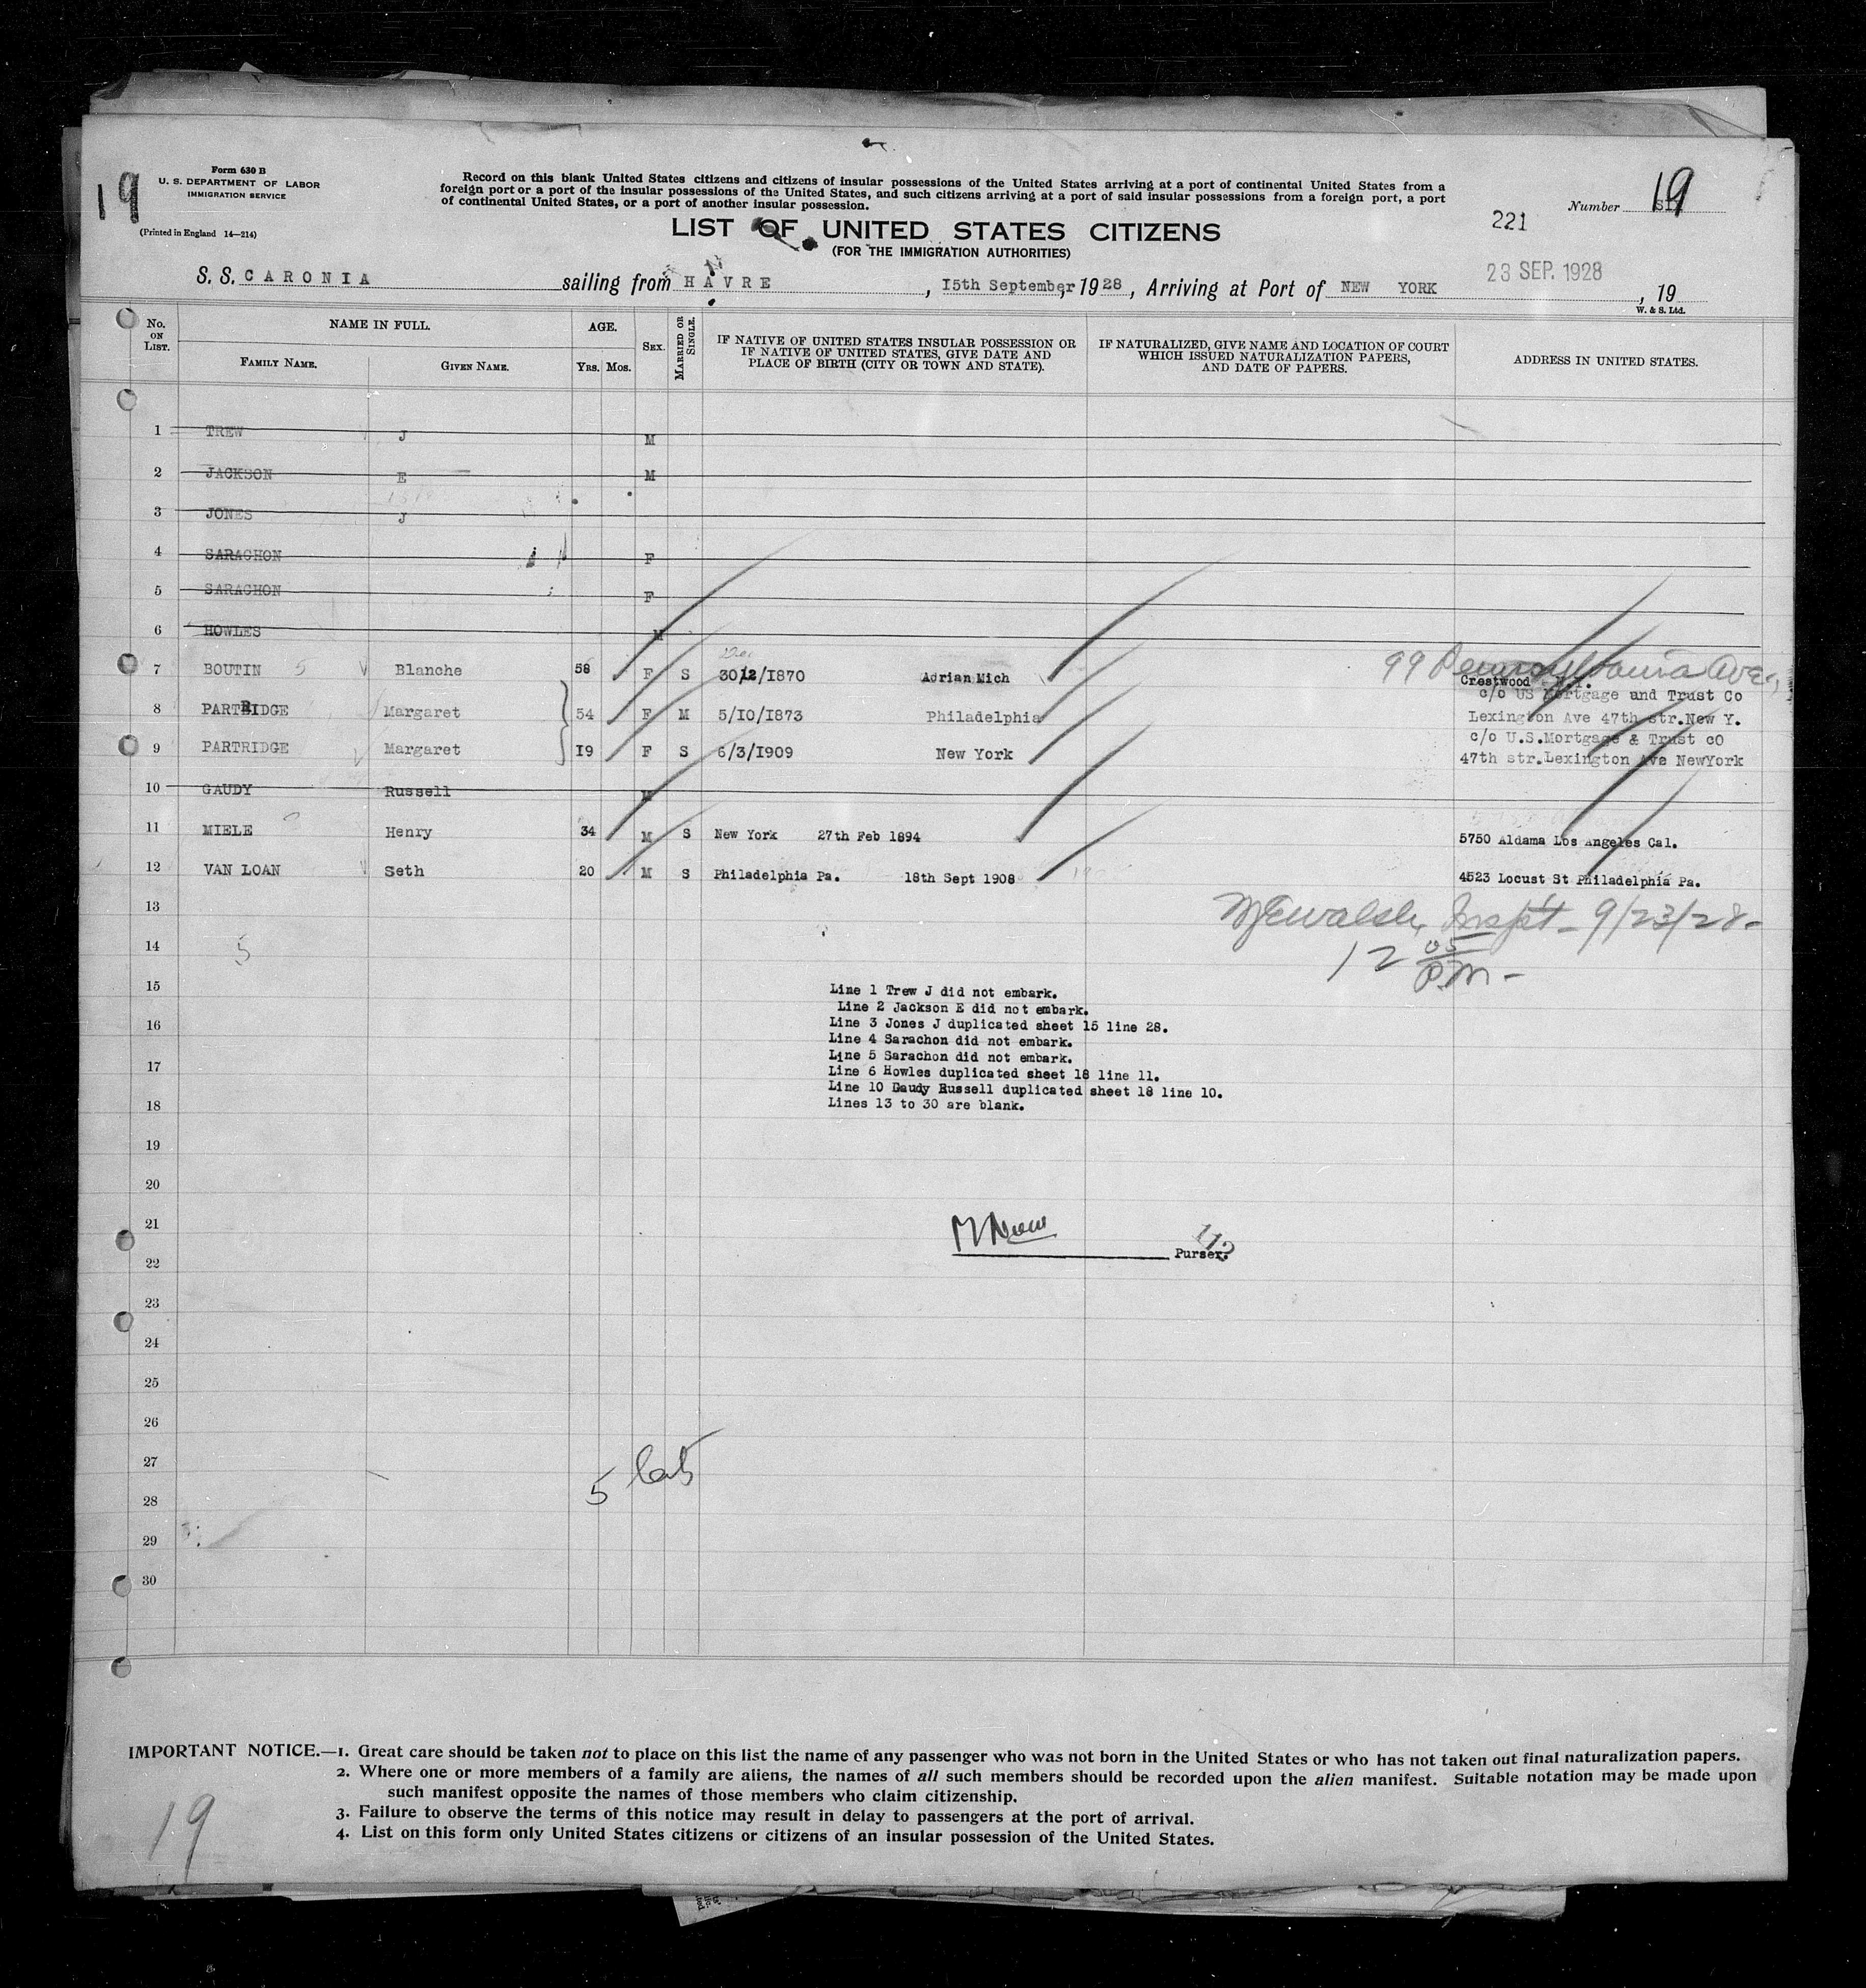 19
Form 630 B
U. S. DEPARTMENT OF LABOR
IMMIGRATION SERVICE
(Printed in England 14—214)
Record on this blank United States citizens and citizens of insular possessions of the United States arriving at a port of continental United States from a
foreign port or a port of the insular possessions of the United States, and such citizens arriving at a port of said insular possessions from a foreign port, a port
of continental United States, or a port of another insular possession.
Number 19
221
LIST OF UNITED STATES CITIZENS
(FOR THE IMMIGRATION AUTHORITIES)
S. S. CARONIA sailing from HAVRE, 15th September, 1928, Arriving at Port of NEW YORK 23 SEP. 1928, 19
W. & S. Ltd.
No. ON LIST. NAME IN FULL. AGE. SEX. MARRIED OR SINGLE. IF NATIVE OF UNITED STATES INSULAR POSSESSION OR IF NATIVE OF UNITED STATES, GIVE DATE AND PLACE OF BIRTH (CITY OR TOWN AND STATE). IF NATURALIZED, GIVE NAME AND LOCATION OF COURT WHICH ISSUED NATURALIZATION PAPERS, AND DATE OF PAPERS. ADDRESS IN UNITED STATES.
FAMILY NAME. GIVEN NAME. YRS. MOS.
1 TREW J M
2 JACKSON E M
3 JONES J
4 SARACHON F
5 SARACHON F
6 HOWLES M
99 Pennsylvania Ave.,
7 BOUTIN 5 Blanche 58 F S 30/12/1870 Adrian Mich Crestwood N.Y.
c/o US Mortgage and Trust Co
8 PARTRIDGE Margaret 54 F M 5/10/1873 Philadelphia Lexington Ave 47th str.New Y.
c/o U.S.Mortgage & Trust cO
9 PARTRIDGE Margaret 19 F S 6/3/1909 New York 47th str.Lexington Ave NewYork
10 GAUDY Russell M
11 MIELE Henry 34 M S New York 27th Feb 1894 5750 Aldama Los Angeles Cal.
12 VAN LOAN Seth 20 M S Philadelphia Pa. 18th Sept 1908 4523 Locust St Philadelphia Pa.
13 Walsh, Insp't - 9/23/28-
14 5 12 05 P.M -
15
Line 1 Trew J did not embark.
Line 2 Jackson E did not embark.
16 Line 3 Jones J duplicated sheet 15 line 28.
Line 4 Sarachon did not embark.
Line 5 Sarachon did not embark.
17 Line 6 Howles duplicated sheet 18 line 11.
Line 10 Gaudy Russell duplicated sheet 18 line 10.
18 Lines 13 to 30 are blank.
19
20
21
112
Purser.
22
23
24
25
26
27
5
28
29
30
IMPORTANT NOTICE.—1. Great care should be taken not to place on this list the name of any passenger who was not born in the United States or who has not taken out final naturalization papers.
2. Where one or more members of a family are aliens, the names of all such members should be recorded upon the alien manifest. Suitable notation may be made upon
such manifest opposite the names of those members who claim citizenship.
3. Failure to observe the terms of this notice may result in delay to passengers at the port of arrival.
4. List on this form only United States citizens or citizens of an insular possession of the United States.
19